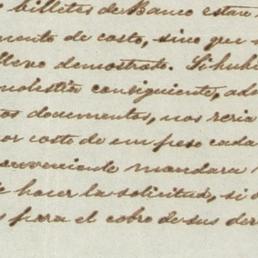 billetes de Banco estar
mento de costo, sino que s
llevo demostrado. Si hubi
molestia consiguiente, ade
os documentos, nos seria
or costo de un peso cada
conveniente mandara
hacer la solicitud, si d
s para el cobro de sus der